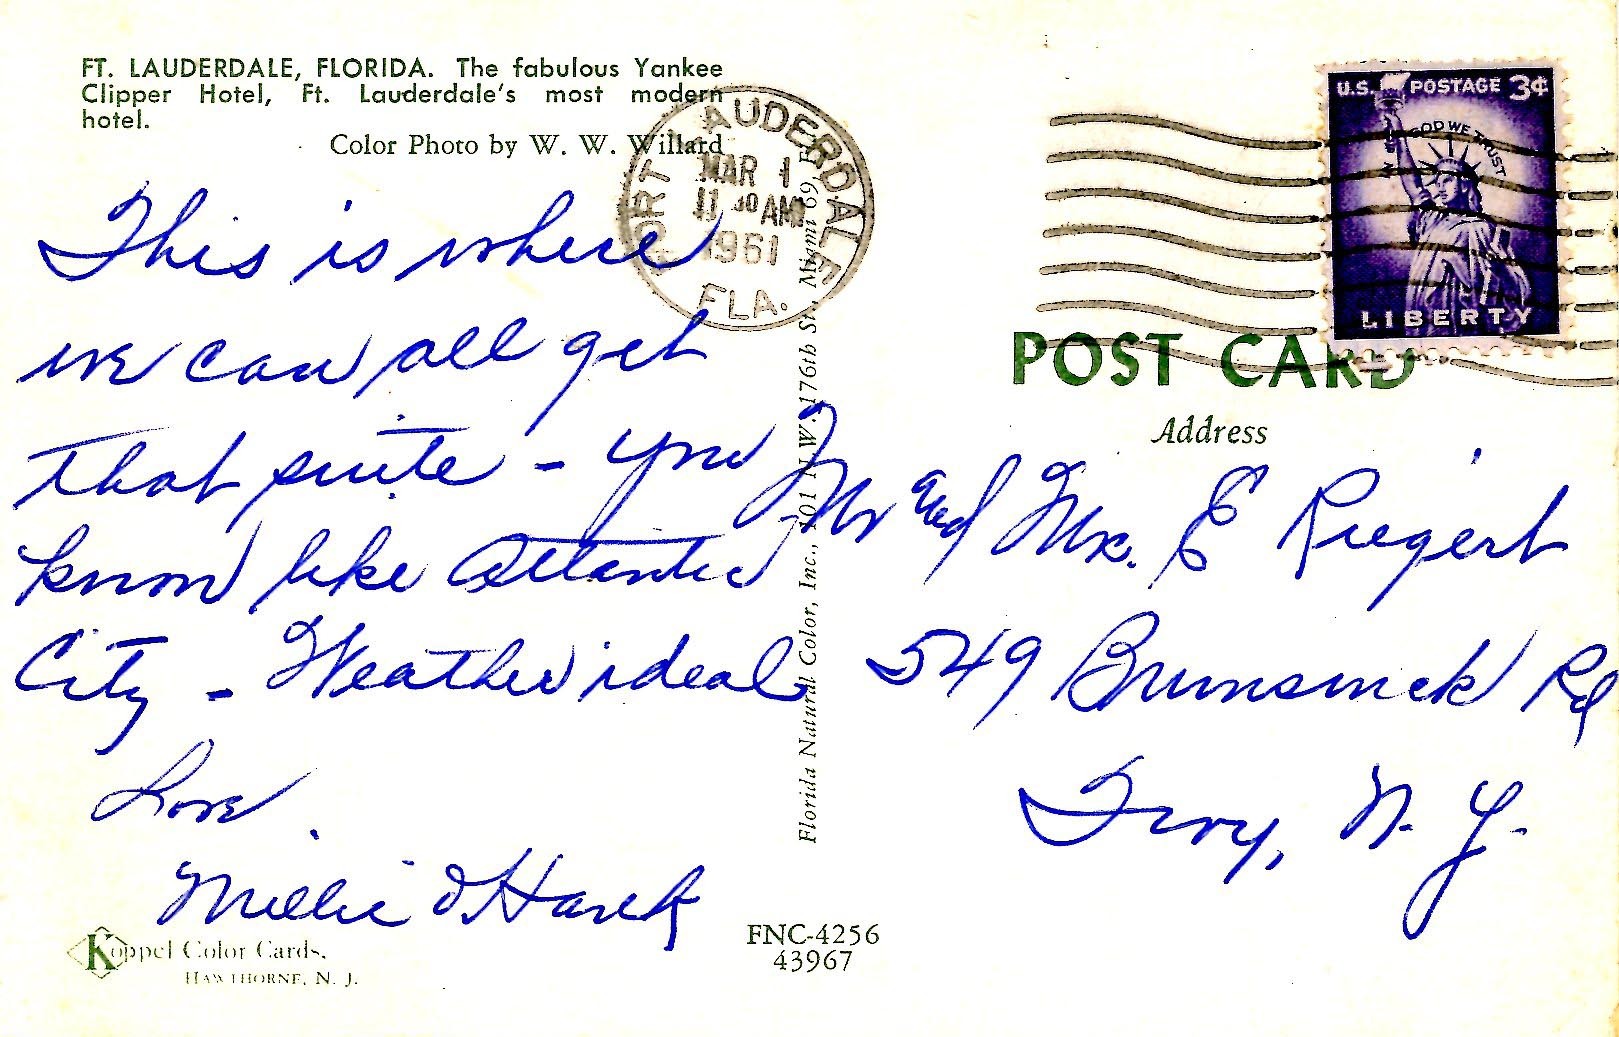 FT. LAUDERDALE, FLORIDA. The fabulous Yankee
Clipper Hotel, Ft. Lauderdale's most modern
hotel.
Color Photo by W. W. Willard
This is where
we can all get
that suite - you
know like Atlantic
City - Weather ideal
Love.
Millie &
Koppel Color Cards.
HAWTHORNE, N. J.
FORT LAUDERDALE
MAR 1
11 30 AM
1961
FLA.
Florida Natural Color, Inc., 101 N.W. 176th St., Miami 69, F
FNC-4256
43967
U.S. POSTAGE 3¢
IN GOD WE TRUST
LIBERTY
POST CARD
Address
Mr and Mrs. E Riegert
549 Brunswick Rd
Troy, N. Y.